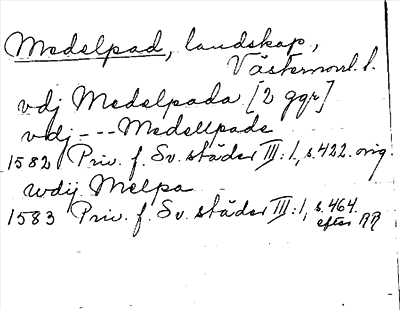 Medelpad, landskap,
Västernorrl. l.
vdj Medelpada [2 ggr]
vdj --- Medellpade
1582 Priv. f. Sv. städer III:1, s.422. orig.
wdij Melpa
1583 Priv. f. Sv. städer III:1, s.464.
efter RR